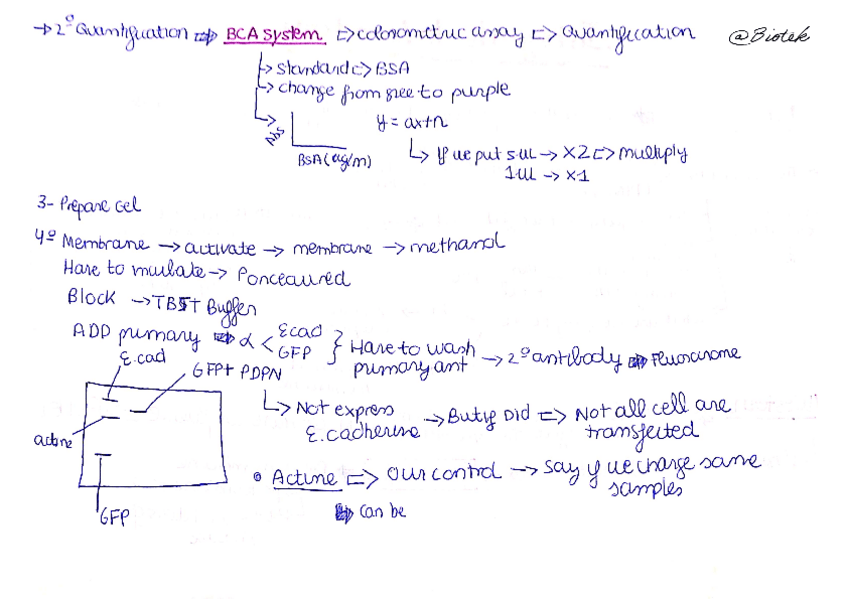 → 2º Quantification ⇒ BCA system ⇒ colorometric assay ⇒ Quantification @Biotek
↳ Standard ⇒ BSA
↳ change from gree to purple
↳ Abs
y = ax+n
BSA (ug/m)
↳ If we put 5uL → X2 ⇒ multiply
1uL → X1
3- Prepare Gel
4º Membrane → activate → membrane → methanol
Have to → Ponceau red
Block → TBST Buffer
ADD primary ⇒ α < Ecad
GFP } Have to wash
primary ant → 2º antibody ⇒
E.cad
GFP+ PDPN
actine
GFP
↳ Not express
E.cadherine → But if Did ⇒ Not all cell are
transfected
• Actine ⇒ Our control → say if we charge same
samples
⇒ Can be